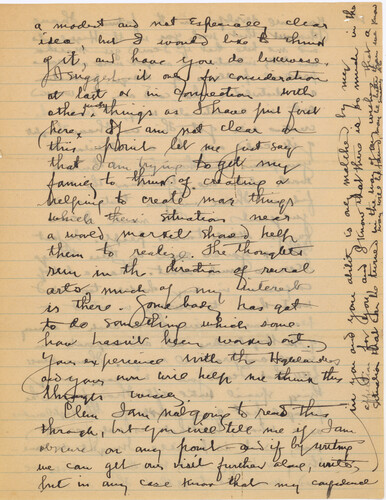 a modest and not especially clear
idea, but I would like to think
of it, and have you do likewise.
I suggest it only for consideration
at last or in connection with
other things as I have put first
here. If I am not clear on
this point let me just say
that I am trying to get my
family to think of creating or
helping to create many things
which their situation near
a world market should help
them to realize. The thoughts
run in the direction of rural
arts, much of my interest
is there. Somebody has got
to do something which some
how hasn't been worked out.
Your experience with the Highlanders
and yours own will help me think this
through.
Clem I am not going to read this
through, but you will tell me if I am
obscure on any point and if by writing
we can get our visit further along, write,
but in any case know that my confidence
in you and your ability is only matched by my
affection for you and I know that there is so much in the
situation that can be turned in the way of